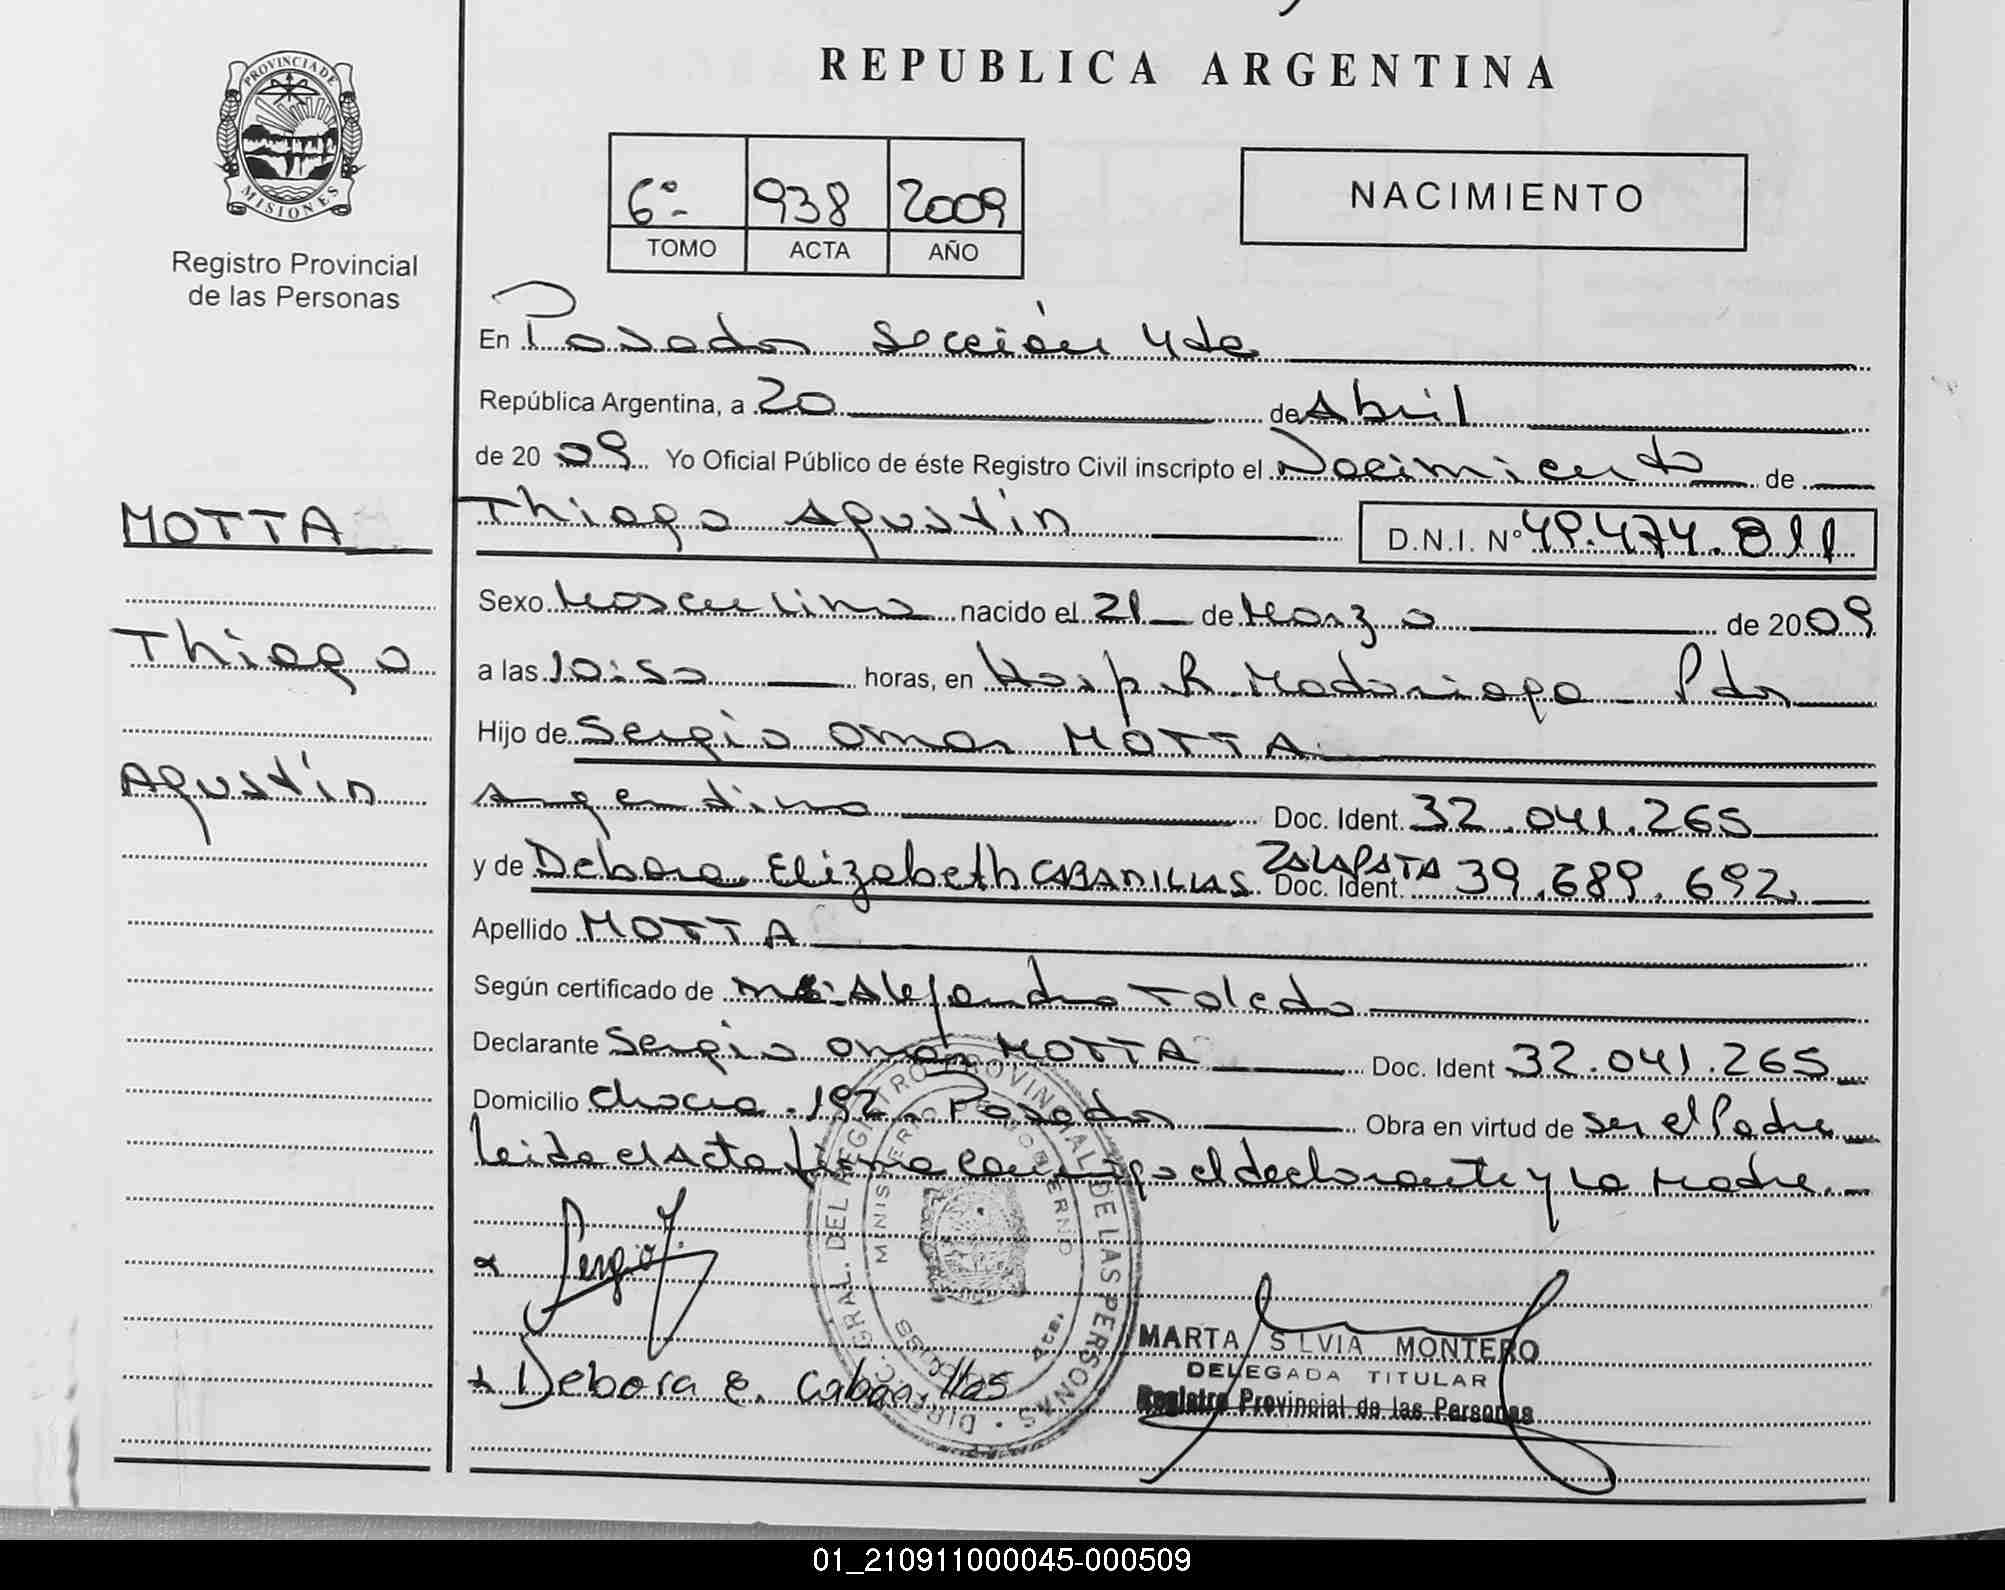 REPUBLICA ARGENTINA
PROVINCIA DE MISIONES
Registro Provincial
de las Personas
6º 938 2009
TOMO ACTA AÑO
NACIMIENTO
En Posadas Sección 4ta
República Argentina, a 20 de Abril
de 20 09 Yo Oficial Público de éste Registro Civil inscripto el Nacimiento de
MOTTA
Thiago
Agustín
Thiago Agustín D.N.I. Nº 49.474.811
Sexo Masculino nacido el 21 de Marzo de 20 09
a las 10:50 horas, en Hosp. R. Madariaga Pdas
Hijo de Sergio Omar MOTTA
Argentino Doc. Ident. 32.041.265
y de Debora Elizabeth CABANILLAS ZALAPATA Doc. Ident. 39.689.692.
Apellido MOTTA
Según certificado de Alejandro Toledo
Declarante Sergio Omar MOTTA Doc. Ident 32.041.265
Domicilio 192. Posadas Obra en virtud de ser el Padre
Leida el Acta firma conmigo el declarante y la Madre.
Sergio
Debora E. Cabanillas
DIREC. GRAL. DEL REGISTRO PROVINCIAL DE LAS PERSONAS
MINISTERIO DE GOBIERNO
4ta.
MARTA SILVIA MONTERO
DELEGADA TITULAR
Registro Provincial de las Personas
01_210911000045-000509